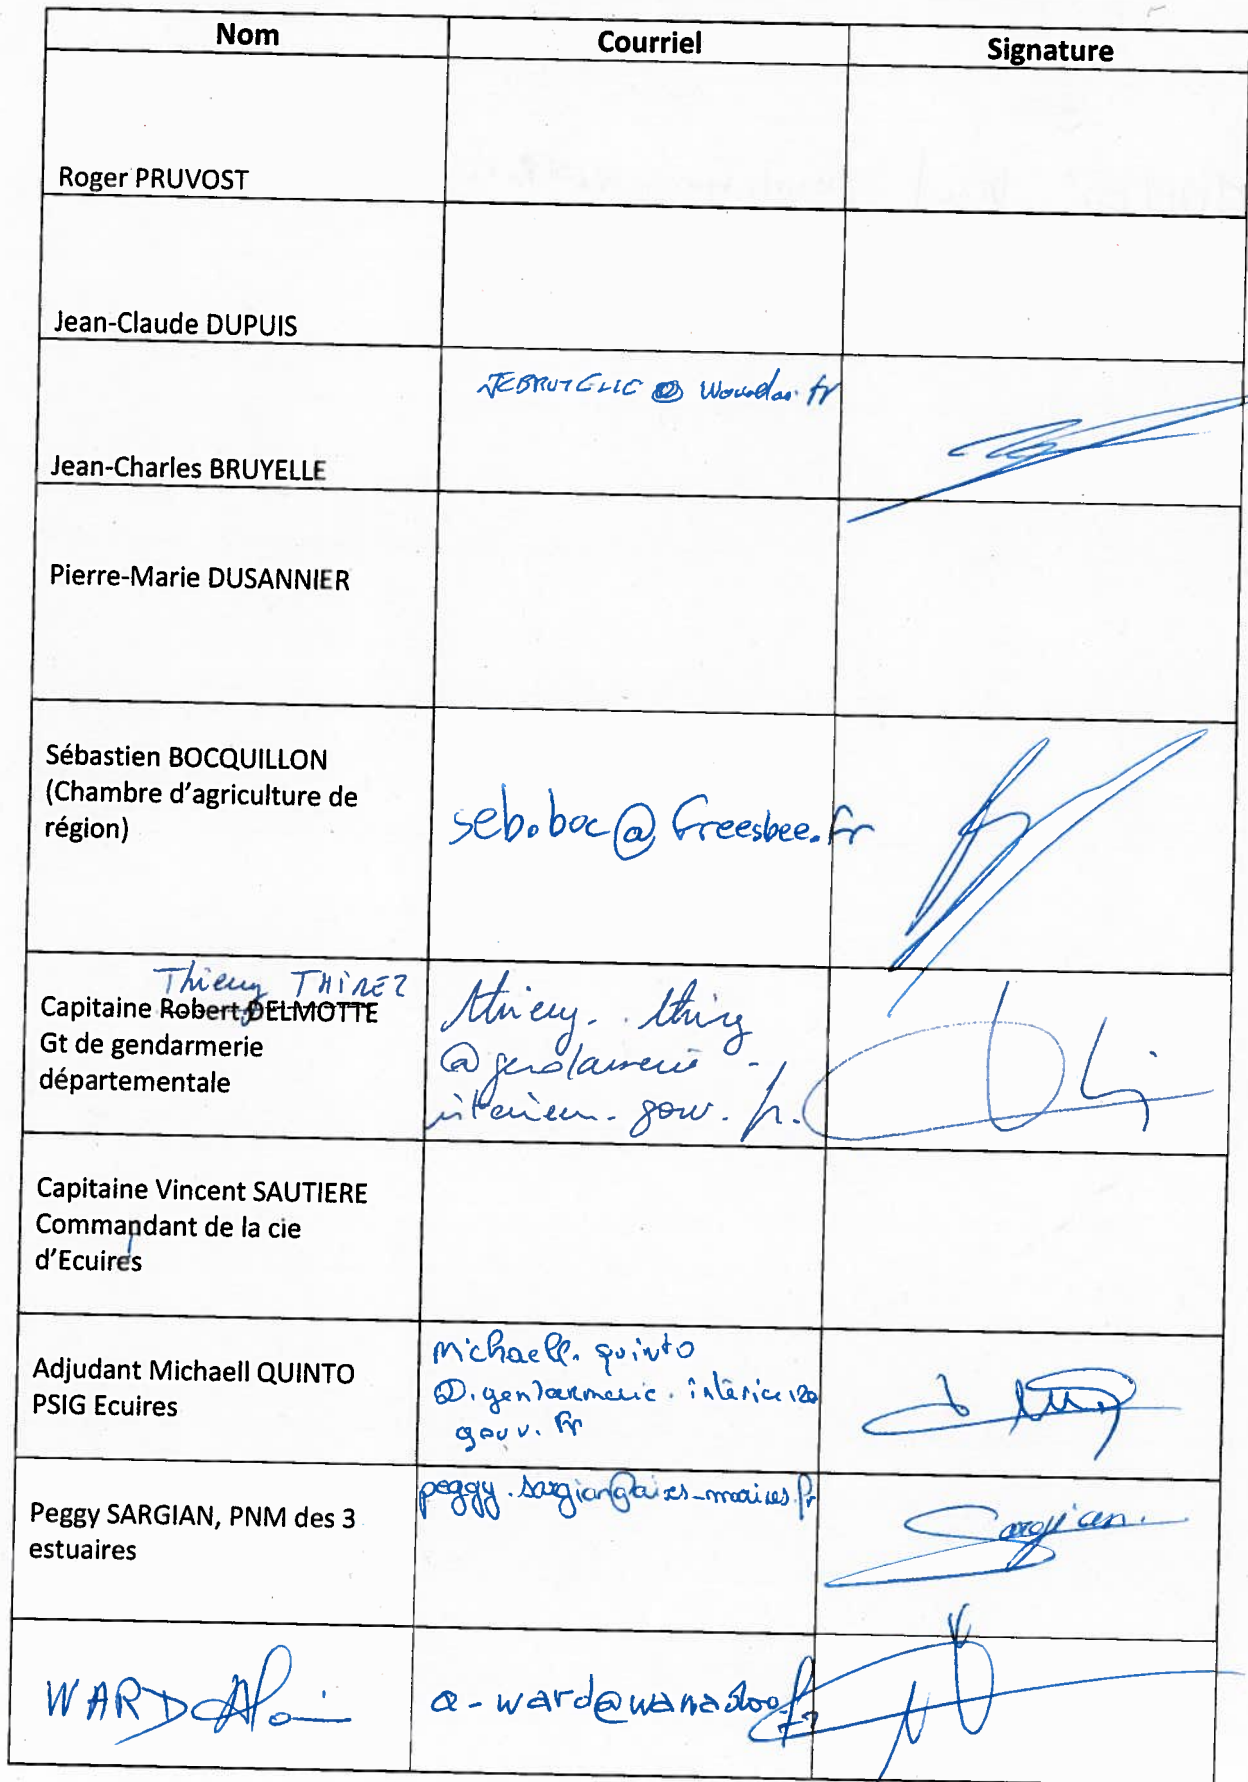 Nom Courriel Signature
Roger PRUVOST
Jean-Claude DUPUIS
Jean-Charles BRUYELLE
Pierre-Marie DUSANNIER
Sébastien BOCQUILLON
(Chambre d'agriculture de
région)
seb.boc@freesbee.fr
Thierry THIREZ
Capitaine Robert DELMOTTE
Gt de gendarmerie
départementale
@gendarmerie.
interieur.gouv.fr.
Capitaine Vincent SAUTIERE
Commandant de la cie
d'Ecuires
Adjudant Michaell QUINTO
PSIG Ecuires
michaell.quinto
gouv.fr
Peggy SARGIAN, PNM des 3
estuaires
peggy.sargian@aires-marines.fr
Sargian
WARD Alain
a-ward@wanadoo.fr